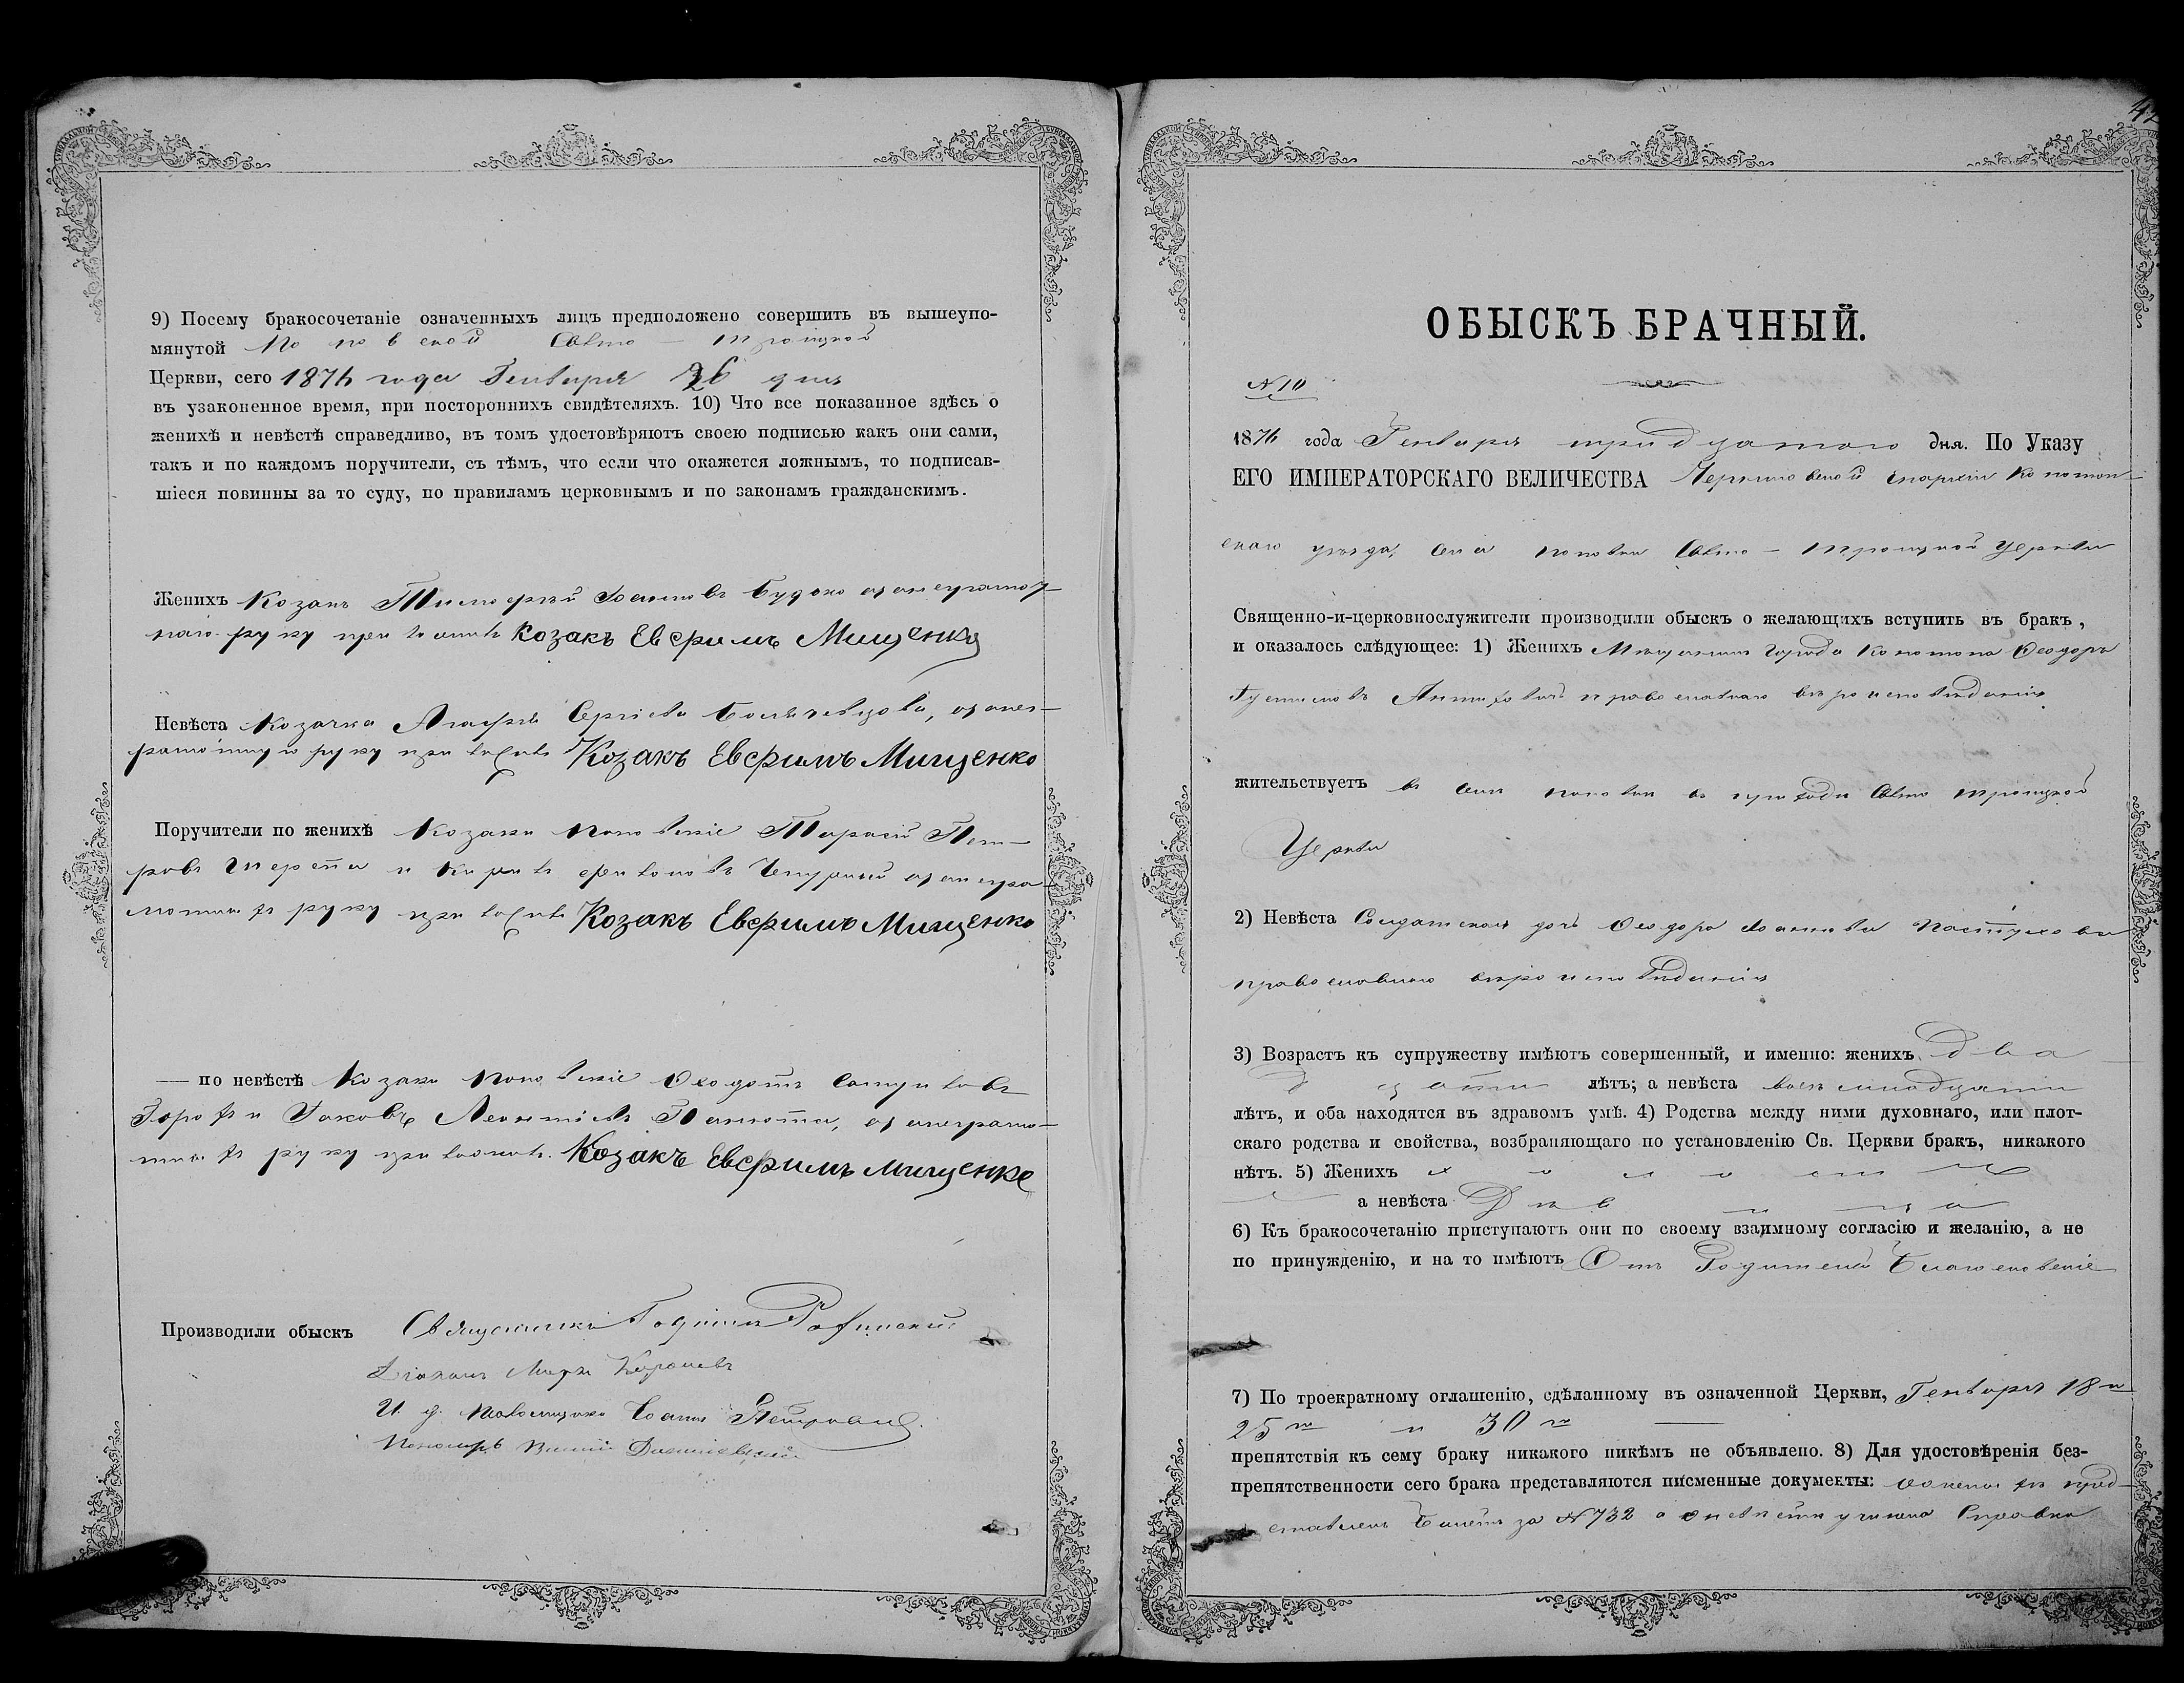 9) Посему бракосочетаніе означенныхъ лицъ предположено совершить въ вышеупо-
мянутой Поповской Свято-Троицкой
Церкви, сего 1876 года Генваря 26 дня
въ узаконенное время, при постороннихъ свидѣтеляхъ. 10) Что все показанное здѣсь о
женихѣ и невѣстѣ справедливо, въ томъ удостовѣряютъ своею подписью какъ они сами,
такъ и по каждомъ поручители, съ тѣмъ, что если что окажется ложнымъ, то подписав-
шіеся повинны за то суду, по правиламъ церковнымъ и по законамъ гражданскимъ.
Женихъ Козакъ Тимофей а за неграмот-
наго руку приложилъ Козакъ Евфимъ Мищенко
Невѣста Козачка Агафія Сергіева а за нег-
рамотную руку приложилъ Козакъ Евфимъ Мищенко
Поручители по женихѣ Козаки Поповскіе Тарасій Пет-
ровъ Шерета и а за негра-
мотныхъ руку приложилъ Козакъ Евфимъ Мищенко
— по невѣстѣ Козаки Поповскіе
и Яковъ Леонтіевъ а за неграмо-
тныхъ руку приложилъ Козакъ Евфимъ Мищенко
Производили обыскъ Священникъ
Діаконъ Маркъ
И. д. Псаломщика Іоаннъ Петровскій.
Пономарь
ОБЫСКЪ БРАЧНЫЙ.
№ 10
1876 года Генваря тридцатого дня. По Указу
ЕГО ИМПЕРАТОРСКАГО ВЕЛИЧЕСТВА Черниговской Епархіи Конотоп-
скаго уѣзда, села Поповки Свято-Троицкой Церкви
Священно-и-церковнослужители производили обыскъ о желающихъ вступить въ бракъ,
и оказалось слѣдующее: 1) Женихъ Мѣщанинъ Города Конотопа Ѳеодоръ
православнаго вѣроисповѣданія
жительствуетъ въ селѣ Поповки въ приходѣ Свято Троицкой
Церкви
2) Невѣста Солдатская дочь Ѳеодора Іоаннова Пастухова
православнаго вѣроисповѣданія
3) Возрастъ къ супружеству имѣютъ совершенный, и именно: женихъ два-
дцати лѣтъ; а невѣста восемнадцати
лѣтъ, и оба находятся въ здравомъ умѣ. 4) Родства между ними духовнаго, или плот-
скаго родства и свойства, возбраняющаго по установленію Св. Церкви бракъ, никакого
нѣтъ. 5) Женихъ холостъ
а невѣста Дѣвица
6) Къ бракосочетанію приступаютъ они по своему взаимному согласію и желанію, а не
по принужденію, и на то имѣютъ Отъ Родителей Благословеніе
7) По троекратному оглашенію, сдѣланному въ означенной Церкви, Генваря 18го
25го и 30го
препятствія къ сему браку никакого никѣмъ не объявлено. 8) Для удостовѣренія без-
препятственности сего брака представляются писменные документы: о женихѣ пред-
ставленъ билетъ за № 732 а о невѣсти учинена Справка